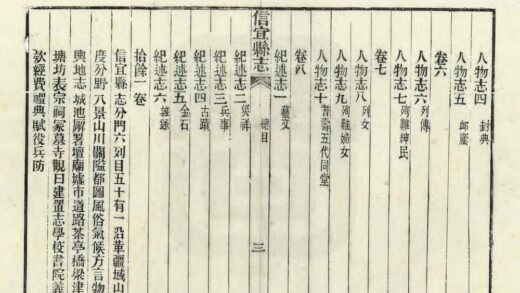 人物四 封典
人物五 卹廕
卷六
人物六 列傳
人物七 殉難紳民
卷七
人物八 列女
人物九 殉難婦女
人物十 耆壽五代同堂
卷八
紀述一 藝文
信宜縣志 總目 三
紀述二 災祥
紀述三 兵事
紀述四 古蹟
紀述五 金石
紀述六 雜錄
拾餘一卷
信宜縣 志分門六列目五十有一沿革疆域山
度分野八景山川關隘都圖風俗氣候方言物
輿地志 城池廨署壇廟墟市道路茶亭橋梁津
塘坊表宗祠冢墓寺觀曰建置志學校書院義
欵經費禮典賦役兵防